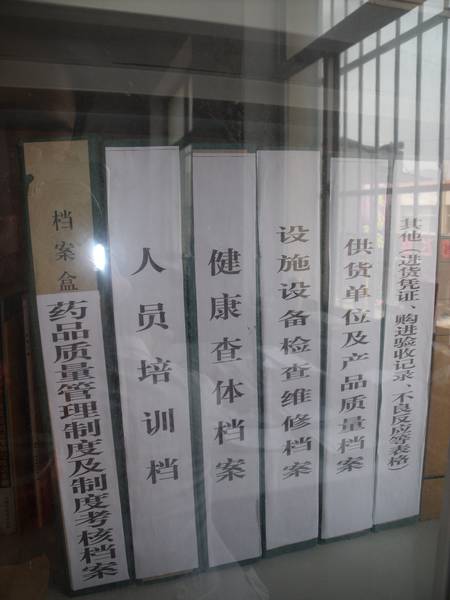 档案盒
药品质量管理制度及制度考核档案
人员培训档
健康查体档案
设施设备检查维修档案
供货单位及产品质量档案
其他（进货凭证、购进验收记录、不良反应等表格）